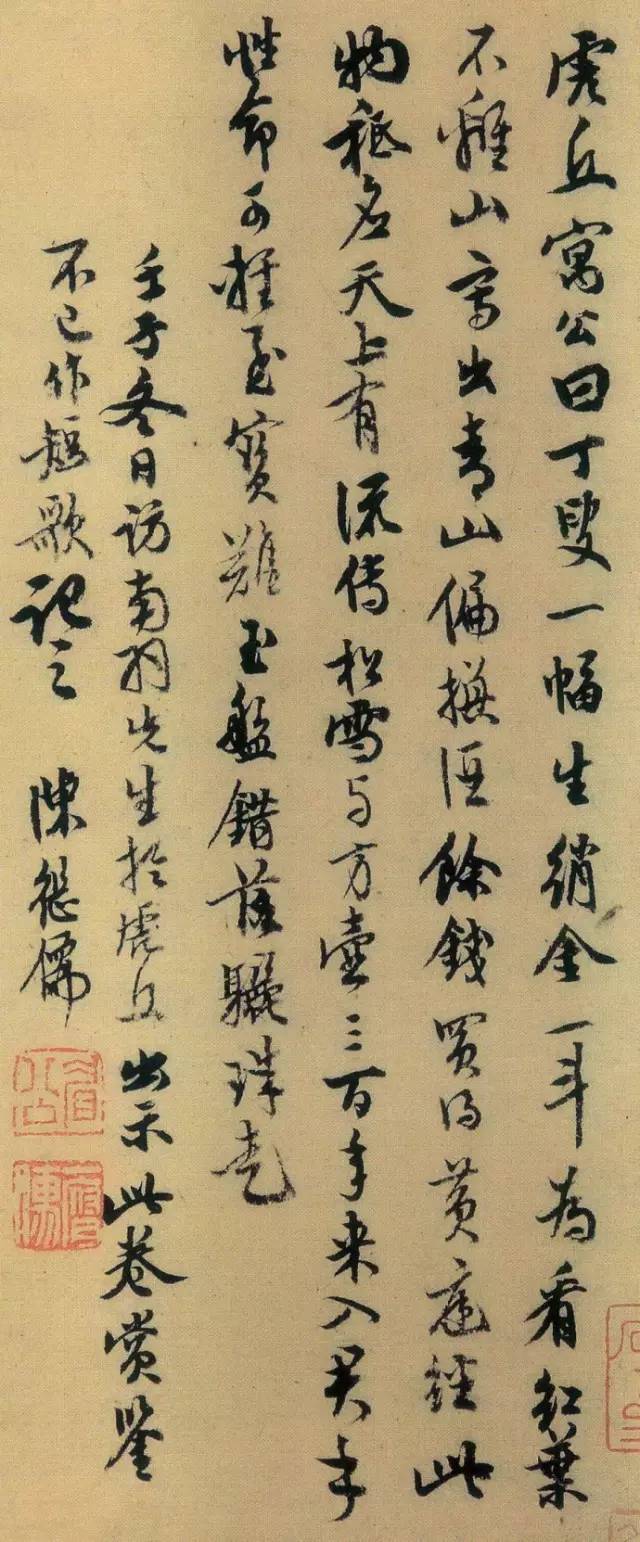 虎丘寓公曰丁叟一幅生綃金一斗為看紅葉
不離山寫出青山偏換酒餘錢買得黃庭經此
物秪應天上有流傳松雪与方壺三百年來入君手
性命可輕至寶難玉盤錯落驪珠走
壬子冬日訪南羽先生於虎丘出示此卷賞鑒
不已作短歌記之 陳継儒